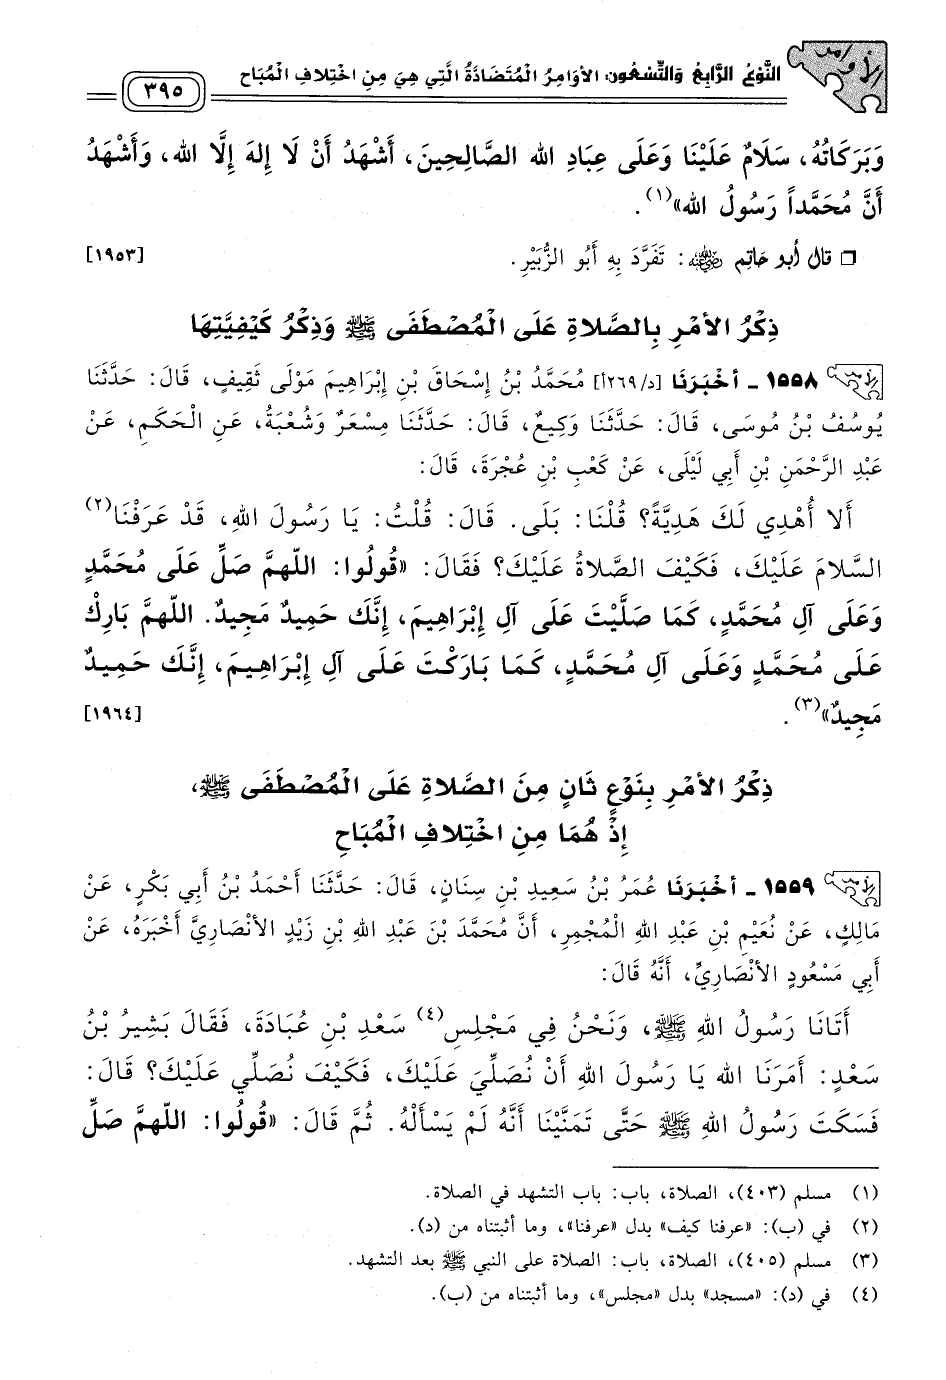 الأوامر
النَّوْعُ الرَّابِعُ وَالتِّسْعُون: الأَوَامِرُ الْمُتَضَادَةُ الَّتِي هِيَ مِنِ اخْتِلافِ الْمُبَاحِ
٣٩٥
وَبَرَكَاتُهُ، سَلَامٌ عَلَيْنَا وَعَلَى عِبَادِ الله الصَّالِحِينَ، أَشْهَدُ أَنْ لَا إِلهَ إِلَّا الله، وَأَشْهَدُ
أَنَّ مُحَمَّداً رَسُولُ الله»(١).
□ قال أبو حاتِم رضي الله عنه: تَفَرَّدَ بِهِ أَبُو الزُّبَيْرِ. [١٩٥٣]
ذِكْرُ الأَمْرِ بِالصَّلاةِ عَلَى الْمُصْطَفَى ﷺ وَذِكْرُ كَيْفِيَّتِهَا
١٥٥٨ - أَخْبَرَنَا [د/٢٦٩أ] مُحَمَّدُ بْنُ إِسْحَاقَ بْنِ إِبْرَاهِيمَ مَوْلَى ثَقِيفٍ، قَالَ: حَدَّثَنَا
يُوسُفُ بْنُ مُوسَى، قَالَ: حَدَّثَنَا وَكِيعٌ، قَالَ: حَدَّثَنَا مِسْعَرٌ وَشُعْبَةُ، عَنِ الْحَكَمِ، عَنْ
عَبْدِ الرَّحْمَنِ بْنِ أَبِي لَيْلَى، عَنْ كَعْبِ بْنِ عُجْرَةَ، قَالَ:
أَلا أُهْدِي لَكَ هَدِيَّةً؟ قُلْنَا: بَلَى. قَالَ: قُلْتُ: يَا رَسُولَ اللهِ، قَدْ عَرَفْنَا(٢)
السَّلامَ عَلَيْكَ، فَكَيْفَ الصَّلاةُ عَلَيْكَ؟ فَقَالَ: «قُولُوا: اللّهمَّ صَلِّ عَلَى مُحَمَّدٍ
وَعَلَى آلِ مُحَمَّدٍ، كَمَا صَلَّيْتَ عَلَى آلِ إِبْرَاهِيمَ، إِنَّكَ حَمِيدٌ مَجِيدٌ. اللّهمَّ بَارِكْ
عَلَى مُحَمَّدٍ وَعَلَى آلِ مُحَمَّدٍ، كَمَا بَارَكْتَ عَلَى آلِ إِبْرَاهِيمَ، إِنَّكَ حَمِيدٌ
مَجِيدٌ»(٣). [١٩٦٤]
ذِكْرُ الأَمْرِ بِنَوْعٍ ثَانٍ مِنَ الصَّلاةِ عَلَى الْمُصْطَفَى ﷺ،
إِذْ هُمَا مِنِ اخْتِلافِ الْمُبَاحِ
١٥٥٩ - أَخْبَرَنَا عُمَرُ بْنُ سَعِيدِ بْنِ سِنَانٍ، قَالَ: حَدَّثَنَا أَحْمَدُ بْنُ أَبِي بَكْرٍ، عَنْ
مَالِكٍ، عَنْ نُعَيْمِ بْنِ عَبْدِ اللهِ الْمُجْمِرِ، أَنَّ مُحَمَّدَ بْنَ عَبْدِ اللهِ بْنِ زَيْدٍ الأَنْصَارِيَّ أَخْبَرَهُ، عَنْ
أَبِي مَسْعُودٍ الأَنْصَارِيِّ، أَنَّهُ قَالَ:
أَتَانَا رَسُولُ اللهِ ﷺ، وَنَحْنُ فِي مَجْلِسِ(٤) سَعْدِ بْنِ عُبَادَةَ، فَقَالَ بَشِيرُ بْنُ
سَعْدٍ: أَمَرَنَا الله يَا رَسُولَ اللهِ أَنْ نُصَلِّيَ عَلَيْكَ، فَكَيْفَ نُصَلِّي عَلَيْكَ؟ قَالَ:
فَسَكَتَ رَسُولُ اللهِ ﷺ حَتَّى تَمَنَّيْنَا أَنَّهُ لَمْ يَسْأَلْهُ. ثُمَّ قَالَ: «قُولُوا: اللّهمَّ صَلِّ
(١) مسلم (٤٠٣)، الصلاة، باب: باب التشهد في الصلاة.
(٢) في (ب): «عرفنا كيف» بدل «عرفنا»، وما أثبتناه من (د).
(٣) مسلم (٤٠٥)، الصلاة، باب: الصلاة على النبي ﷺ بعد التشهد.
(٤) في (د): «مسجد» بدل «مجلس»، وما أثبتناه من (ب).